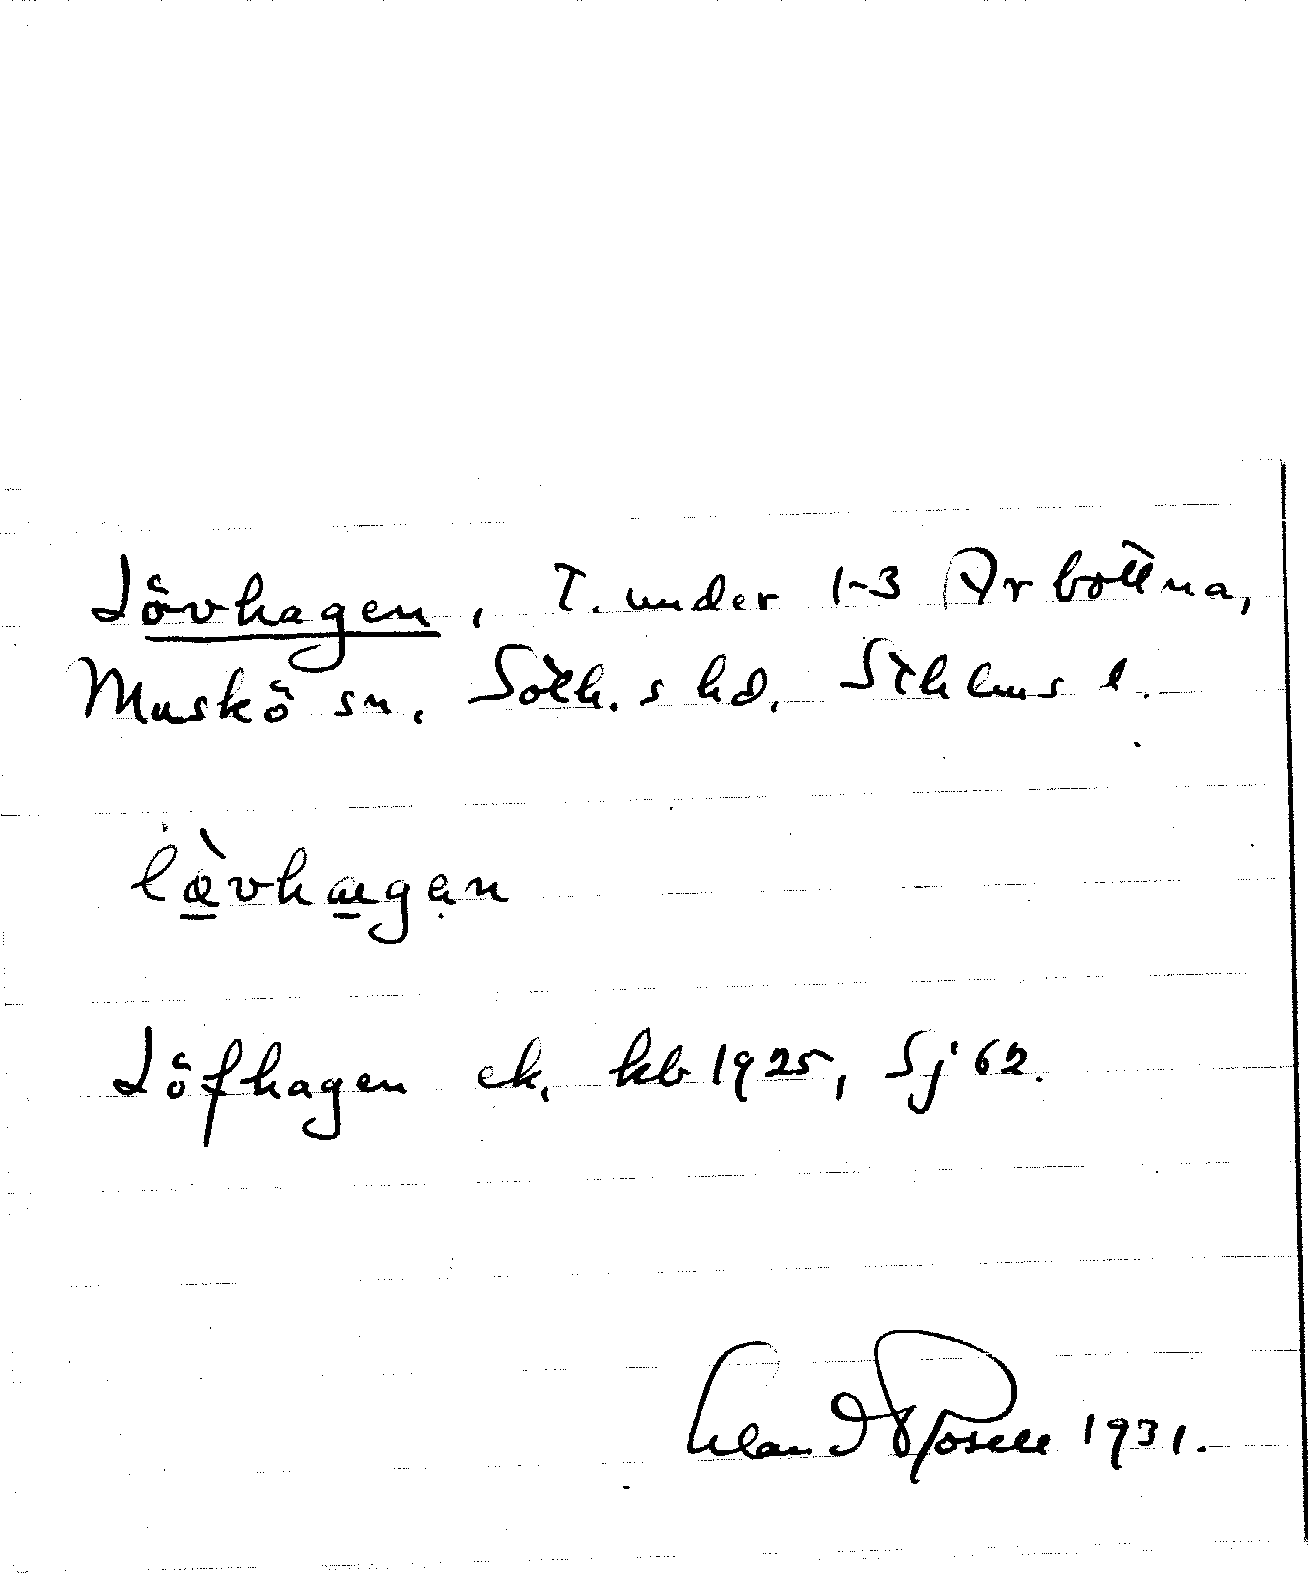 Lövhagen, T. under 1-3 Arbottna,
Muskö sn, Soth. s hd, Sthlms l.
Löfhagen ek. kb 1925, Sj 62.
Erland Rosell 1931.